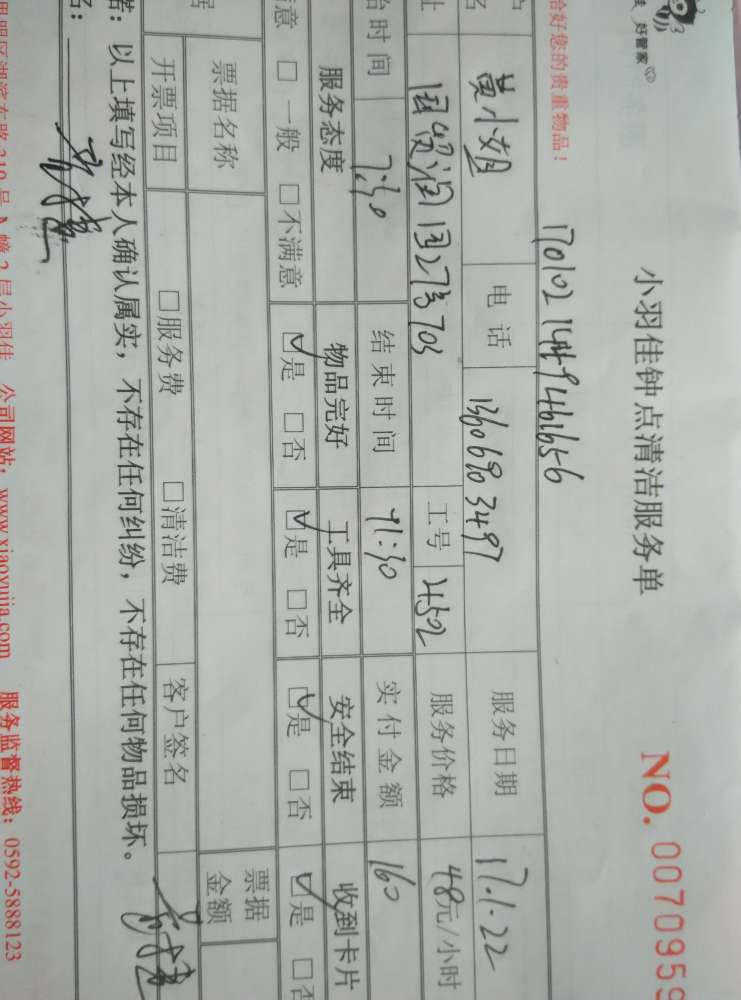 好管家
小羽佳钟点清洁服务单
NO. 0070959
恰好您的贵重物品!
黄小姐 电话 13606903497 服务日期 17.1.22
国贸润园273703 工号 4502 服务价格 48元/小时
始时间 7:30 结束时间 11:30 实付金额 160
服务态度 物品完好 工具齐全 安全结束 收到卡片
意 □一般 □不满意 ☑是 □否 ☑是 □否 ☑是 □否 ☑是 □否
票据名称 票据金额
开票项目 □服务费 □清洁费 客户签名
诺:以上填写经本人确认属实,不存在任何纠纷,不存在任何物品损坏。
名:
明区湖滨东路319号 2层小羽佳 公司网站:www.xiaoyujia.com 服务监督热线:0592-5888123